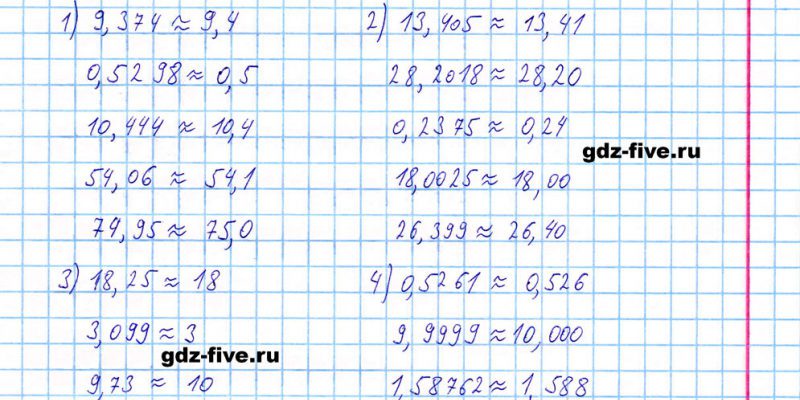 1) 9,374 ≈ 9,4
0,5298 ≈ 0,5
10,444 ≈ 10,4
54,06 ≈ 54,1
74,95 ≈ 75,0
2) 13,405 ≈ 13,41
28,2018 ≈ 28,20
0,2375 ≈ 0,24
gdz-five.ru
18,0025 ≈ 18,00
26,399 ≈ 26,40
3) 18,25 ≈ 18
3,099 ≈ 3
gdz-five.ru
9,73 ≈ 10
4) 0,5261 ≈ 0,526
9,9999 ≈ 10,000
1,58762 ≈ 1,588